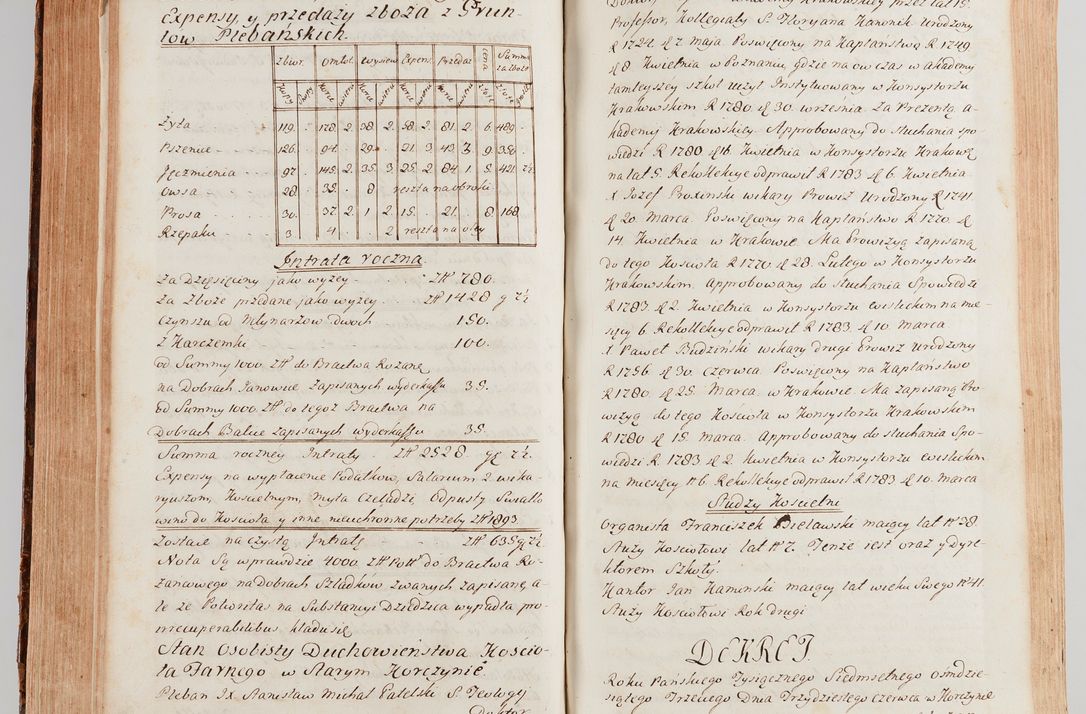 Expensy, y przedaży zboża z Grun-
tów Plebańskich.
zbior. omłot. wysiew Expens. Przedaż cena Summa za zboże
Żyta 119. . 178. 2. 38. 2. 58. 2. 81. 2. 6. 489.
Pszenice 126. . 94. . 29. . 21. 3. 43. 3. 9. 350.
Jęczmienia 97. . 145. 2. 35. 3. 25. 2. 84. 1. 5. 421.
Owsa 28. . 35. . 8 reszta na obroki
Prosa 30. . 37. 2. 1. 2. 15. . 21. . 8 168
Rzepaku 3. 4. . . 2 reszta na oley
Intrata roczna.
Za Dziesięciny jako wyżey Zł 780.
Za Zboże przedane jako wyżey Zł 1428 g
Czynszu od Młynarzow dwoch 150.
z Karczemki 100.
od Summy 1000. Zł do Bractwa Rożań.
na Dobrach Janowice zapisanych wyderkaffu 35.
od Summy 1000. Zł do tegoż Bractwa na
Dobrach Balice zapisanych wyderkaffu 35.
Summa roczney Intraty. Zł 2528
Expensy na wypłacenie Podatków, Salarium 2. wika-
ryuszom, Kościelnym, Myta Czeladzi, Odpusty Światło
wino do Kościoła y inne nieuchronne potrzeby Zł 1893
Zostaie na czystą Intratę Zł 635 g
Nota Są wprawdzie 4000. Zł Pol do Bractwa Ro-
żancowego na Dobrach Szladków zwanych zapisane, a-
le że Potioritas na Substancyi Dziedzica wypadła pro
irrecuperabilibus kładu się
Stan Osobisty Duchowieństwa Koscio-
ła Farnego w Starym Korczynie.
Pleban Jx Stanisław Michał S. Teologij
Doktor
Profesor, Kollegiaty S. Floryana Kanonik Urodzony
R 1724. d 7. Maja. Poswięcony na Kapłaństwo R 1749
d 8. Kwietnia w Poznaniu, gdzie na ow czas w Akademij
tamteyszey szkoł uczył Instytuowany w Konsystorzu
Krakowskim R 1780. d 30. września za Prezentą a-
kademij Krakowskiey. Approbowany do słuchania spo-
wiedzi R 1780 d 16. Kwietnia w Konsystorzu Krakow.
na lat 5. Rekollekcye odprawił R 1783 d 6. Kwietnia
X Jozef Broxinski wikary Prowiz Urodzony R 1741.
d 20. Marca. Poswięcony na Kapłaństwo R 1770. d
14. Kwietnia w Krakowie. Ma Prowizyą zapisaną
do tego Kościoła R 1770. d 28. Lutego w Konsystorzu
Krakowskim. Approbowany do słuchania Spowiedzi
R 1783 d 2. Kwietnia w Konsystorzu na mie-
sięcy 6. Rekollekcye odprawił R 1783. d 10. Marca
X Paweł Budziński wikary drugi Prowiz Urodzony
R 1756 d 30. Czerwca. Poswięcony na Kapłaństwo
R 1780. d 25. Marca. w Krakowie. Ma zapisaną Pro-
wizyą do tego Kościoła w Konsystorzu Krakowskim
R 1780 d 15. Marca. Approbowany do słuchania Spo-
wiedzi R. 1783 d 2. Kwietnia w Konsystorzu
na miesięcy 6. Rekollekcye odprawił R 1783 d 10. Marca
Słudzy Kościelni
Organista Franciszek Bielawski maiący lat N 38.
Służy Kościołowi lat N 7. Tenże iest oraz y Dyre-
ktorem Szkoły.
Kantor Jan Kamenski maiący lat wieku swego N 41.
Służy Kościołowi Rok drugi
DEKRET.
Roku Pańskiego Tysiącznego Siedmsetnego ośmdzie-
siątego Trzeciego Dnia Trzydziestego Czerwca w Korczynie